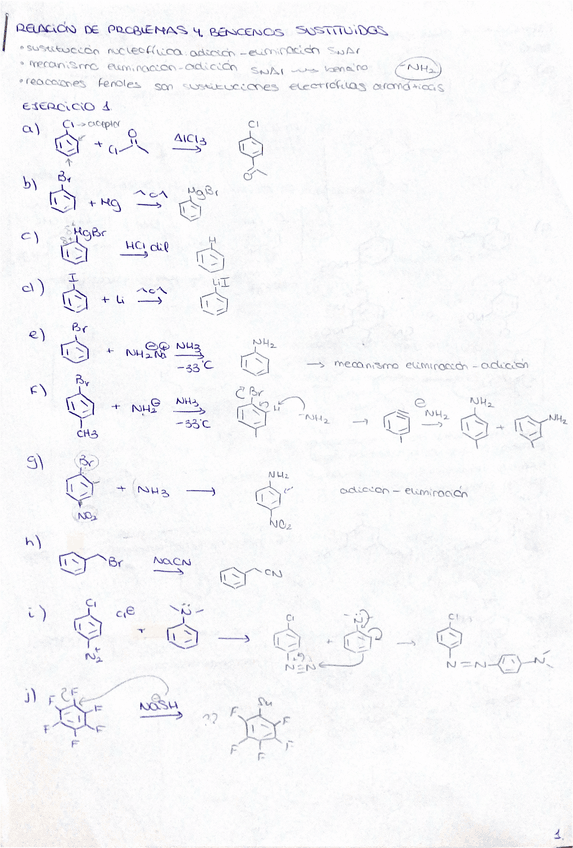 RELACIÓN DE PROBLEMAS 4. BENCENOS SUSTITUIDOS
• sustitución nucleofílica adición-eliminación SNAr
• mecanismo eliminación-adición SNAr ~> bencino -NH2
• reacciones fenoles son sustituciones electrófilas aromáticas
EJERCICIO 1
a) Cl → aceptor + Cl O AlCl3 → Cl O
b) Br + Mg → MgBr
c) MgBr HCl dil → H
d) I + Li → LiI
e) Br + NH2⊖ Na⊕ NH3 -33°C → NH2 → mecanismo eliminación-adición
f) Br CH3 + NH2⊖ NH3 -33°C → Br H NH2 → ⊖NH2 → NH2 + NH2
g) Br NO2 + NH3 → NH2 NO2 adición-eliminación
h) Br NaCN → CN
i) Cl N2+ Cl⊖ + N → Cl N=N + N → Cl N=N N
j) F F F F F F NaSH → ?? SH F F F F F
1.